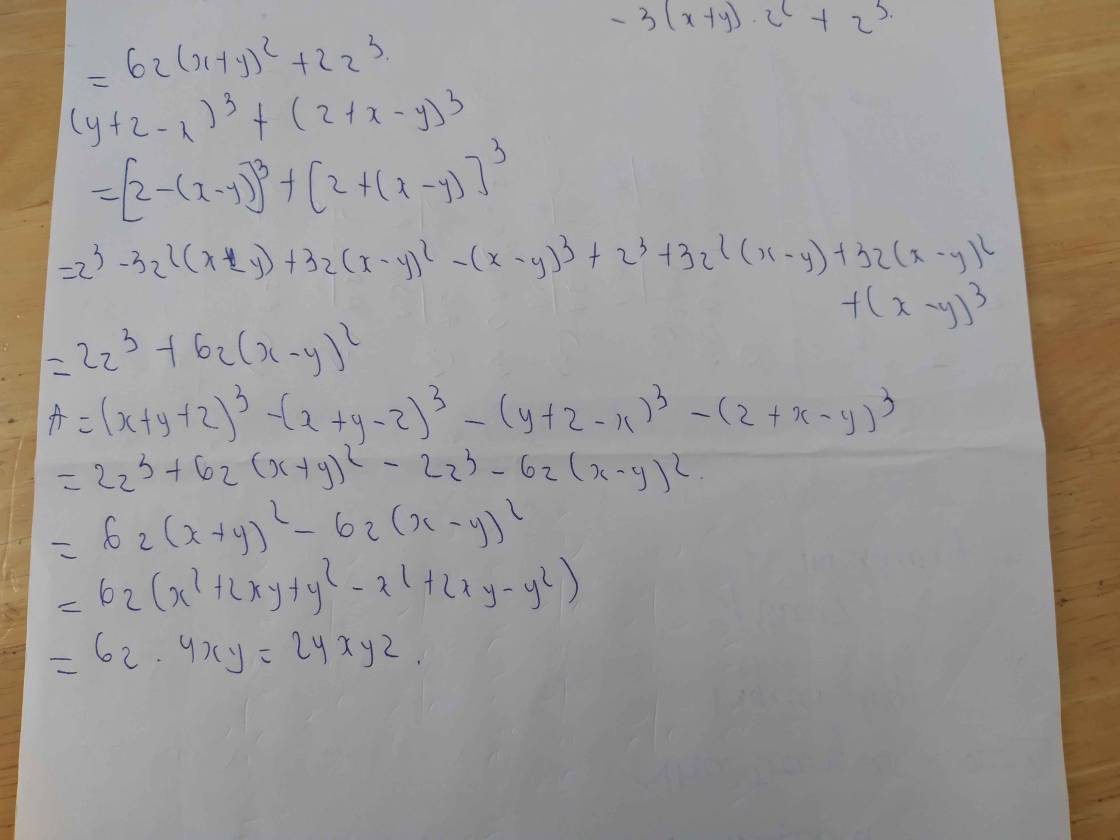 - 3(x+y).z² + z³.
= 6z(x+y)² + 2z³.
(y+z-x)³ + (z+x-y)³
= [z-(x-y)]³ + [z+(x-y)]³
= z³ - 3z²(x-y) + 3z(x-y)² - (x-y)³ + z³ + 3z²(x-y) + 3z(x-y)²
+(x-y)³
= 2z³ + 6z(x-y)²
A = (x+y+z)³ - (x+y-z)³ - (y+z-x)³ - (z+x-y)³
= 2z³ + 6z(x+y)² - 2z³ - 6z(x-y)².
= 6z(x+y)² - 6z(x-y)²
= 6z(x²+2xy+y² - x²+2xy-y²)
= 6z . 4xy = 24xyz.